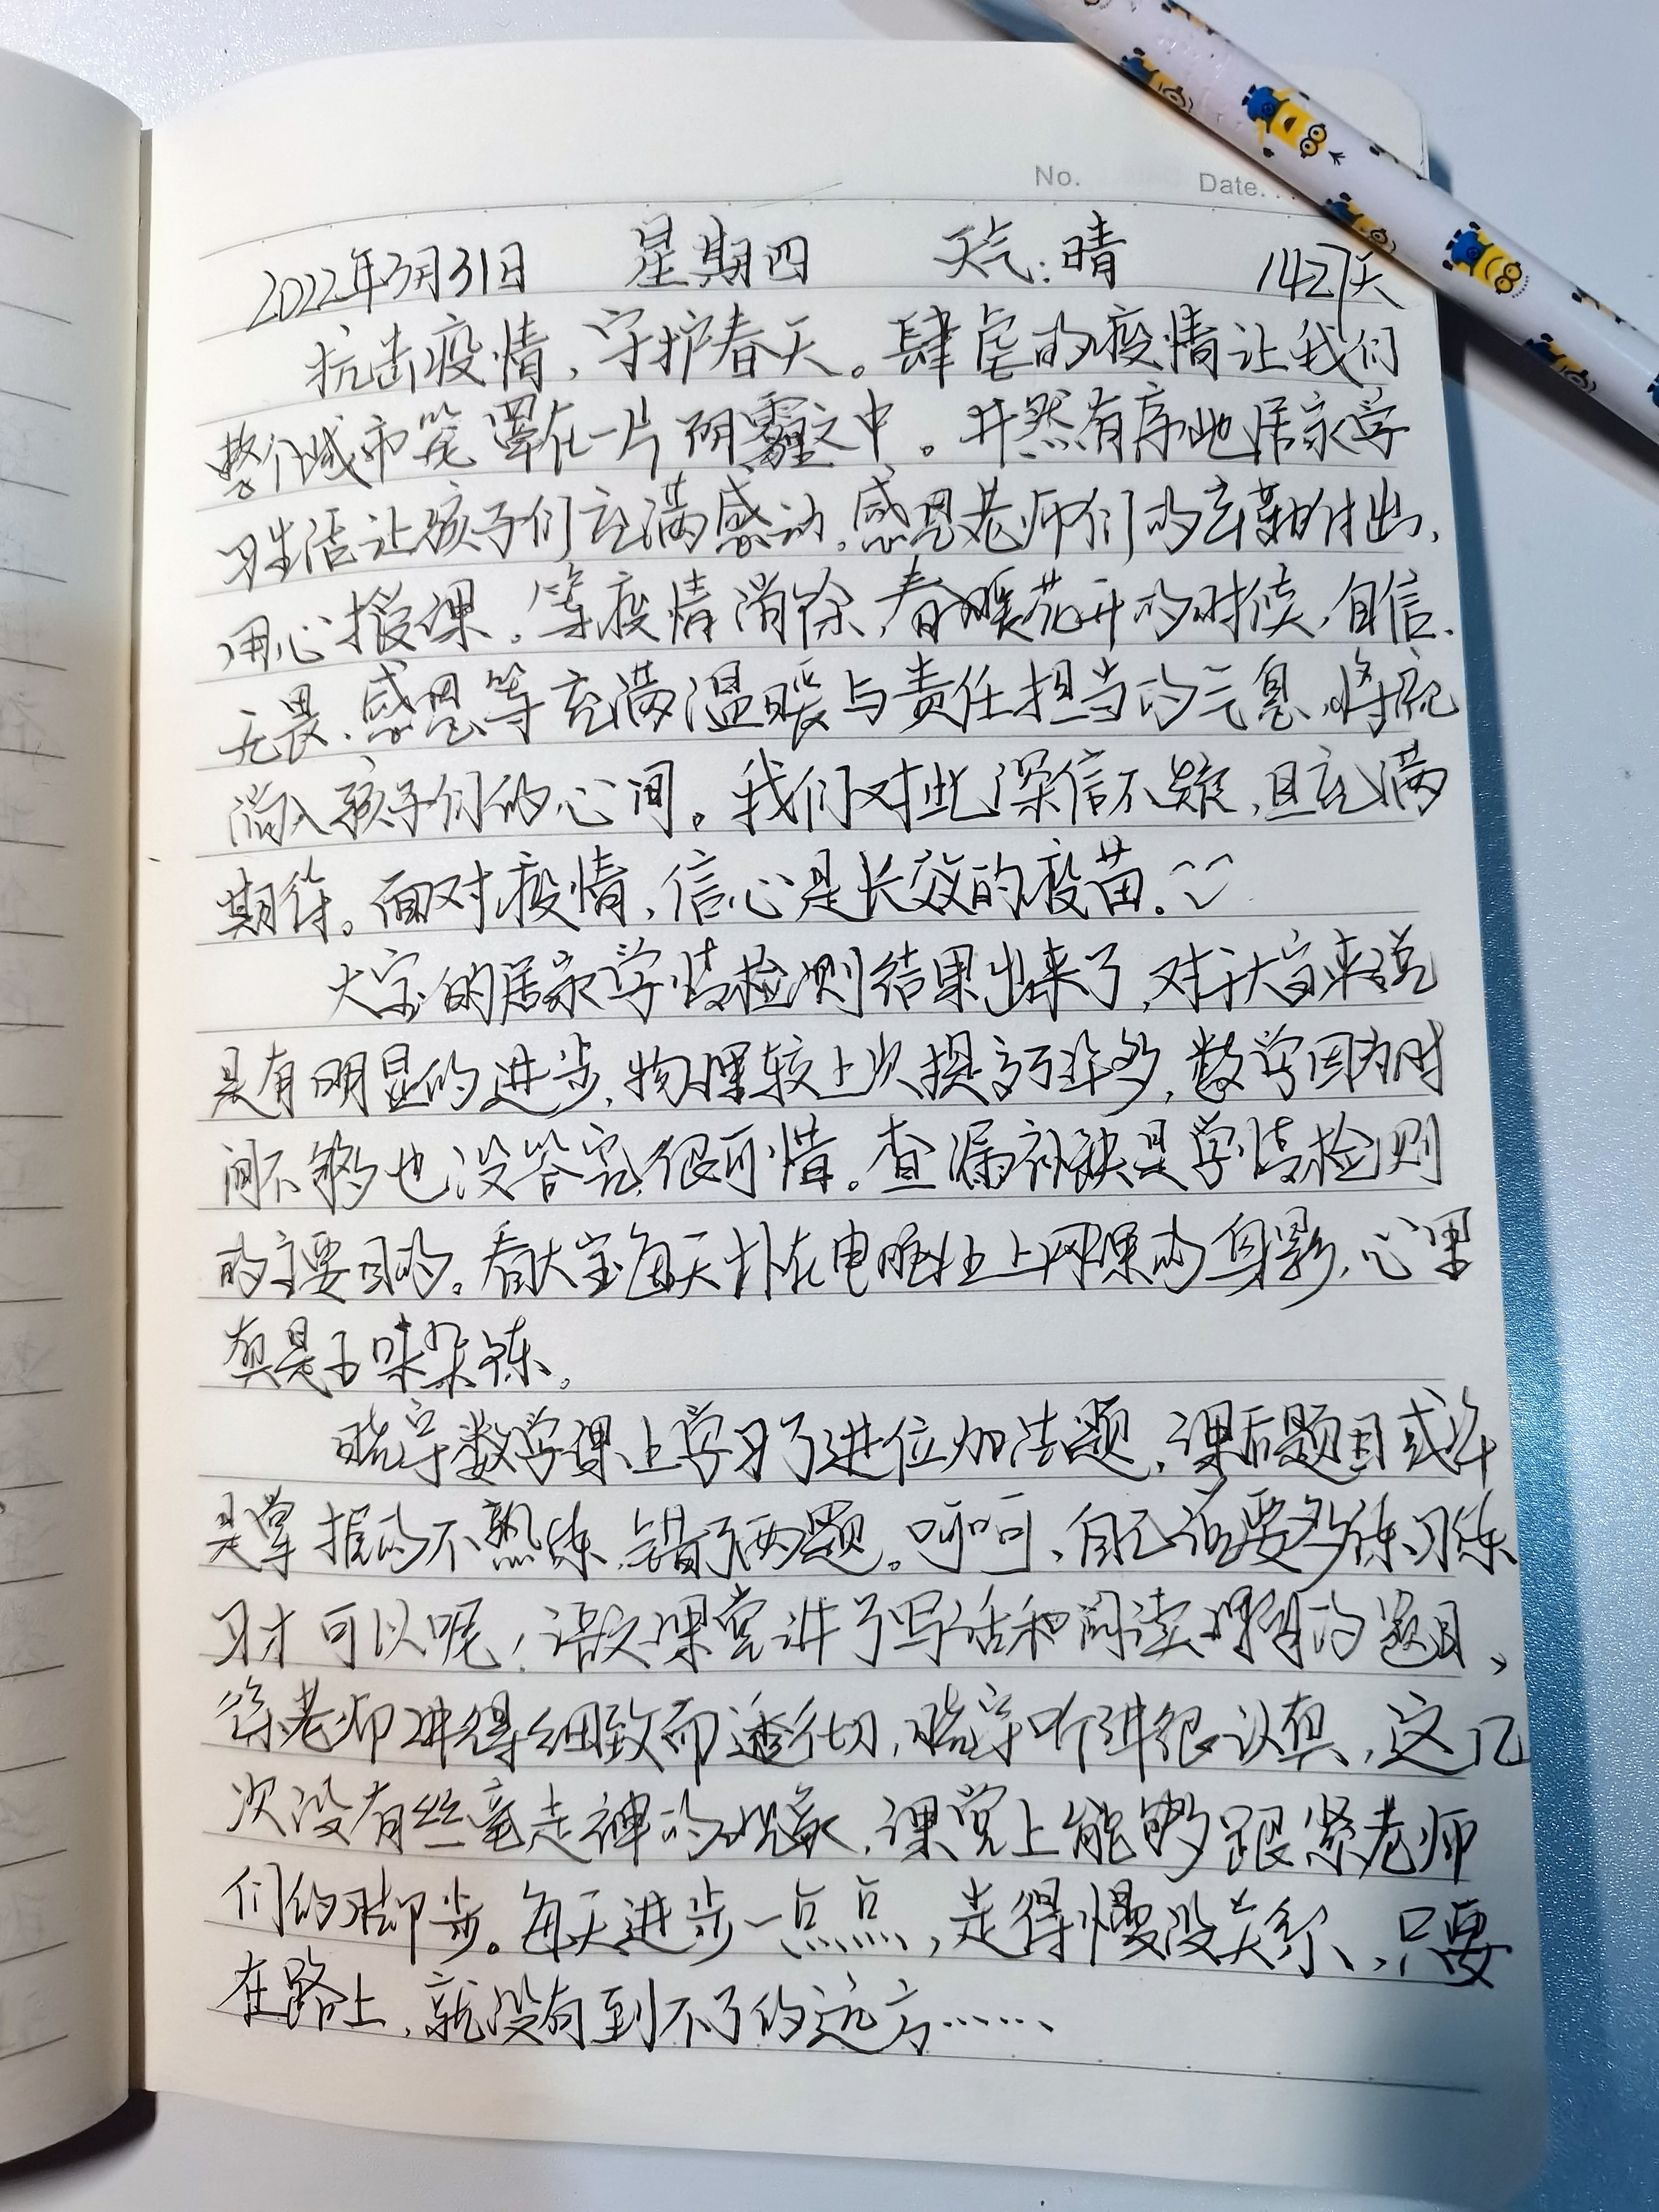 No. Date.
2022年3月31日 星期四 天气:晴 1427天
抗击疫情,守护春天。肆虐的疫情让我们
整个城市笼罩在一片阴霾之中。井然有序地居家学
习生活让孩子们充满感动。感恩老师们的辛勤付出,
用心授课。等疫情消除,春暖花开的时候,自信、
无畏、感恩等充满温暖与责任担当的气息,将流
淌入孩子们的心间。我们对此深信不疑,且充满
期待。面对疫情,信心是长效的疫苗。
大宝的居家学情检测结果出来了,对于大宝来说
是有明显的进步,物理较上次提高了许多,数学因为时
间不够也没答完,很可惜。查漏补缺是学情检测
的主要目的。看大宝每天扑在电脑上网课的身影,心里
真是五味杂陈。
晓宇数学课上学习了进位加法题,课后题目或许
是掌握的不熟练,错了两题。呵呵,自己还要多练习练
习才可以呢!语文课堂讲了写话和阅读理解的题目,
徐老师讲得细致而透彻,晓宇听讲很认真,这几
次没有丝毫走神的现象,课堂上能够跟紧老师
们的脚步。每天进步一点点,走得慢没关系,只要
在路上,就没有到不了的远方……